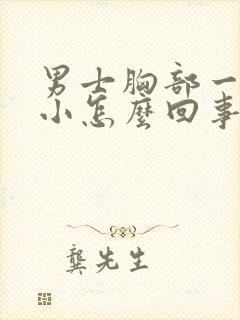 男士胸部一
小怎麼回事
龔先生